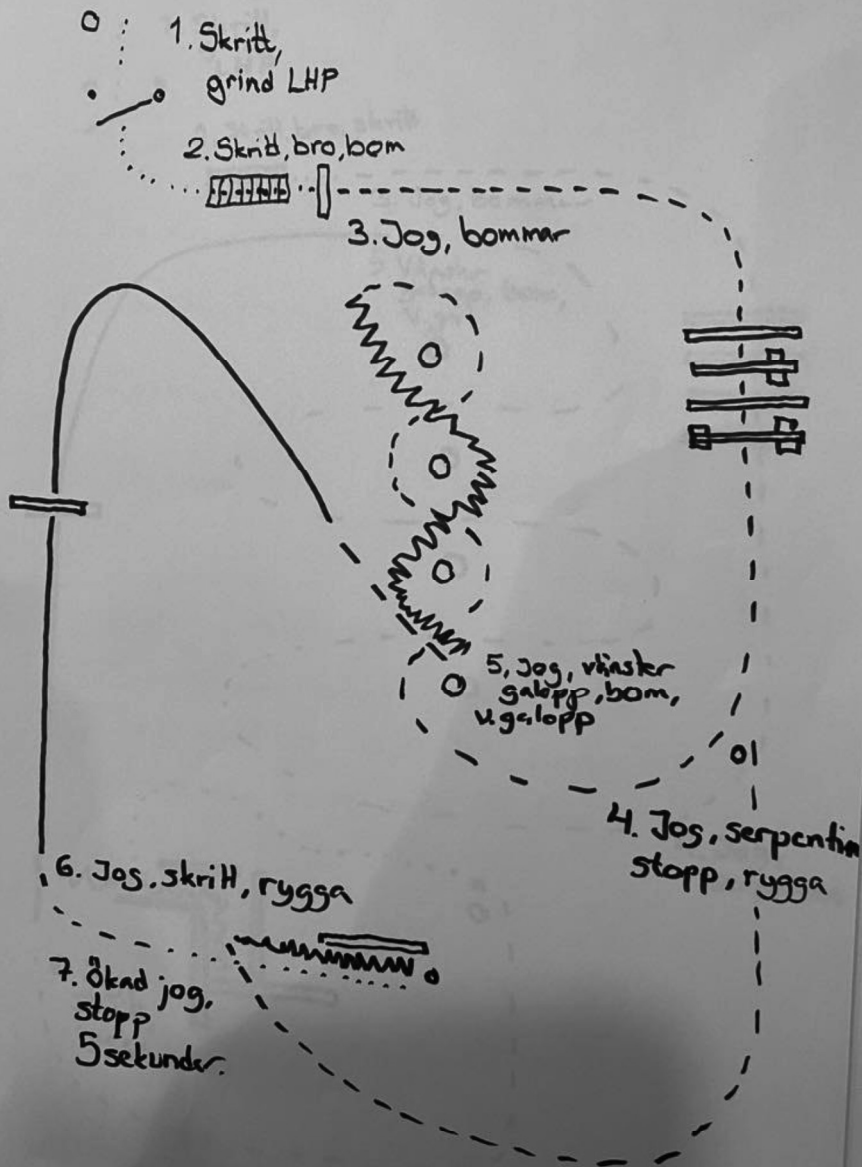 1. Skritt,
grind LHP
2. Skritt, bro, bom
3. Jog, bommar
5, Jog, vänster
galopp, bom,
v.galopp
4. Jog, serpentin
stopp, rygga
6. Jog, skritt, rygga
7. Ökad jog,
stopp
5 sekunder.